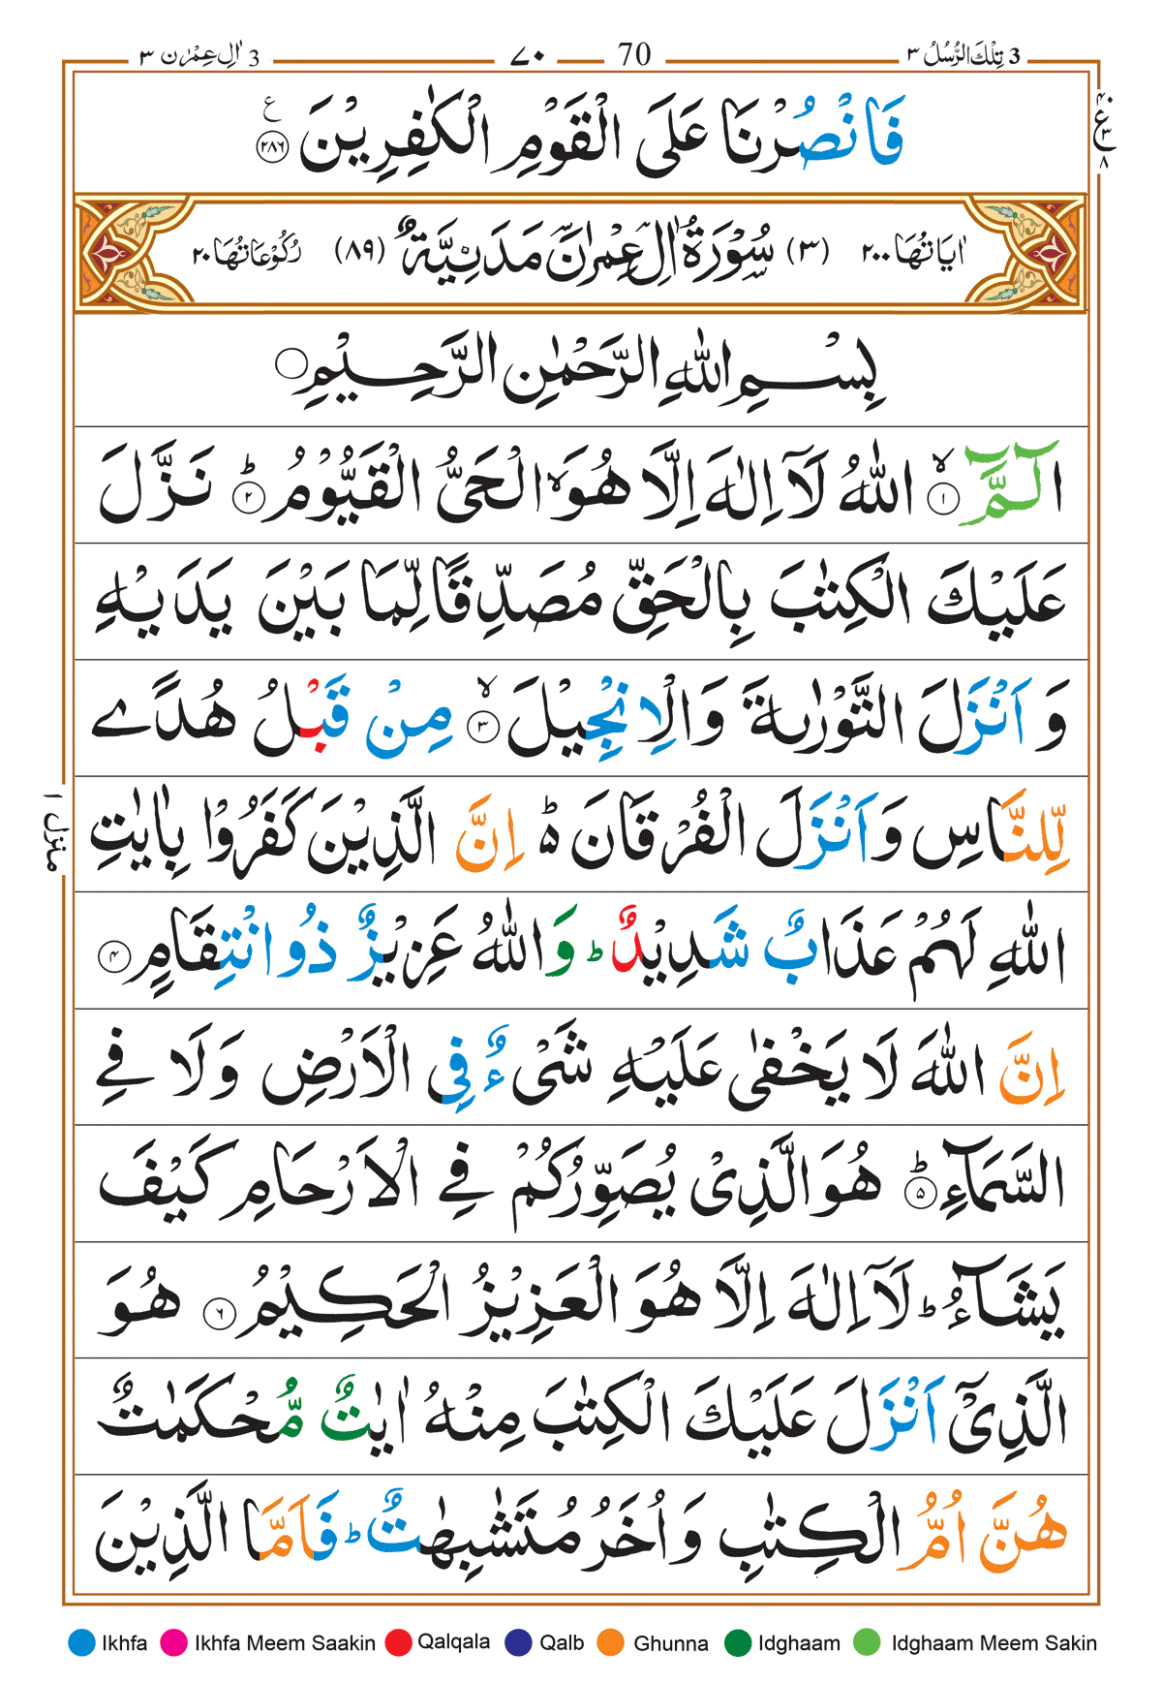 3 تِلْكَ الرُّسُلُ ٣
70
٧٠
3 اٰلِ عِمْرٰن ٣
فَانْصُرْنَا عَلَى الْقَوْمِ الْكٰفِرِيْنَ ۝٢٨٦ ع
اٰيَاتُهَا ٢٠٠ (٣) سُوْرَةُ اٰلِ عِمْرٰنَ مَدَنِيَّةٌ (٨٩) رُكُوْعَاتُهَا ٢٠
بِسْمِ اللّٰهِ الرَّحْمٰنِ الرَّحِيْمِ
الٓمَّٓ ۙ‏﴿١﴾ اللّٰهُ لَاۤ اِلٰهَ اِلَّا هُوَ ۙ الْحَىُّ الْقَيُّوْمُ ؕ‏﴿٢﴾ نَزَّلَ
عَلَيْكَ الْكِتٰبَ بِالْحَقِّ مُصَدِّقًا لِّمَا بَيْنَ يَدَيْهِ
وَ اَنْزَلَ التَّوْرٰىةَ وَالْاِنْجِيْلَ ۙ‏﴿٣﴾ مِنْ قَبْلُ هُدًى
لِّلنَّاسِ وَاَنْزَلَ الْفُرْقَانَ ؕ اِنَّ الَّذِيْنَ كَفَرُوْا بِاٰيٰتِ
اللّٰهِ لَهُمْ عَذَابٌ شَدِيْدٌ ؕ وَاللّٰهُ عَزِيْزٌ ذُو انْتِقَامٍ ﴿٤﴾
اِنَّ اللّٰهَ لَا يَخْفٰى عَلَيْهِ شَىْءٌ فِى الْاَرْضِ وَلَا فِى
السَّمَآءِ ؕ‏﴿٥﴾ هُوَ الَّذِىْ يُصَوِّرُكُمْ فِى الْاَرْحَامِ كَيْفَ
يَشَآءُ ؕ لَاۤ اِلٰهَ اِلَّا هُوَ الْعَزِيْزُ الْحَكِيْمُ ﴿٦﴾ هُوَ
الَّذِىْۤ اَنْزَلَ عَلَيْكَ الْكِتٰبَ مِنْهُ اٰيٰتٌ مُّحْكَمٰتٌ
هُنَّ اُمُّ الْكِتٰبِ وَاُخَرُ مُتَشٰبِهٰتٌ ؕ فَاَمَّا الَّذِيْنَ
منزل ١
Ikhfa Ikhfa Meem Saakin Qalqala Qalb Ghunna Idghaam Idghaam Meem Sakin